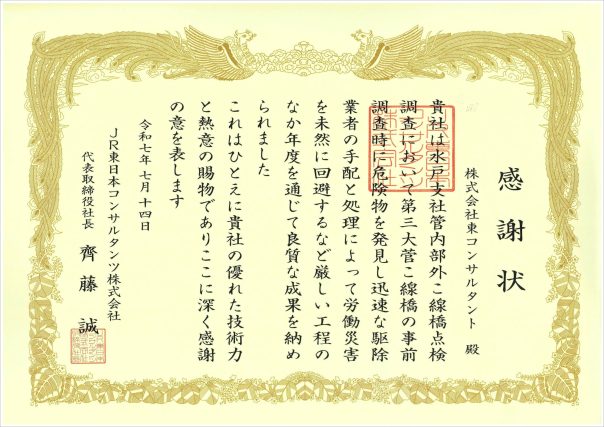 感謝状
株式会社東コンサルタント 殿
貴社は水戸支社管内部外こ線橋点検
調査において第三大菅こ線橋の事前
調査時に危険物を発見し迅速な駆除
業者の手配と処理によって労働災害
を未然に回避するなど厳しい工程の
なか年度を通じて良質な成果を納め
られました
これはひとえに貴社の優れた技術力
と熱意の賜物でありここに深く感謝
の意を表します
令和七年七月十四日
JR東日本コンサルタンツ株式会社
代表取締役社長 齊藤 誠